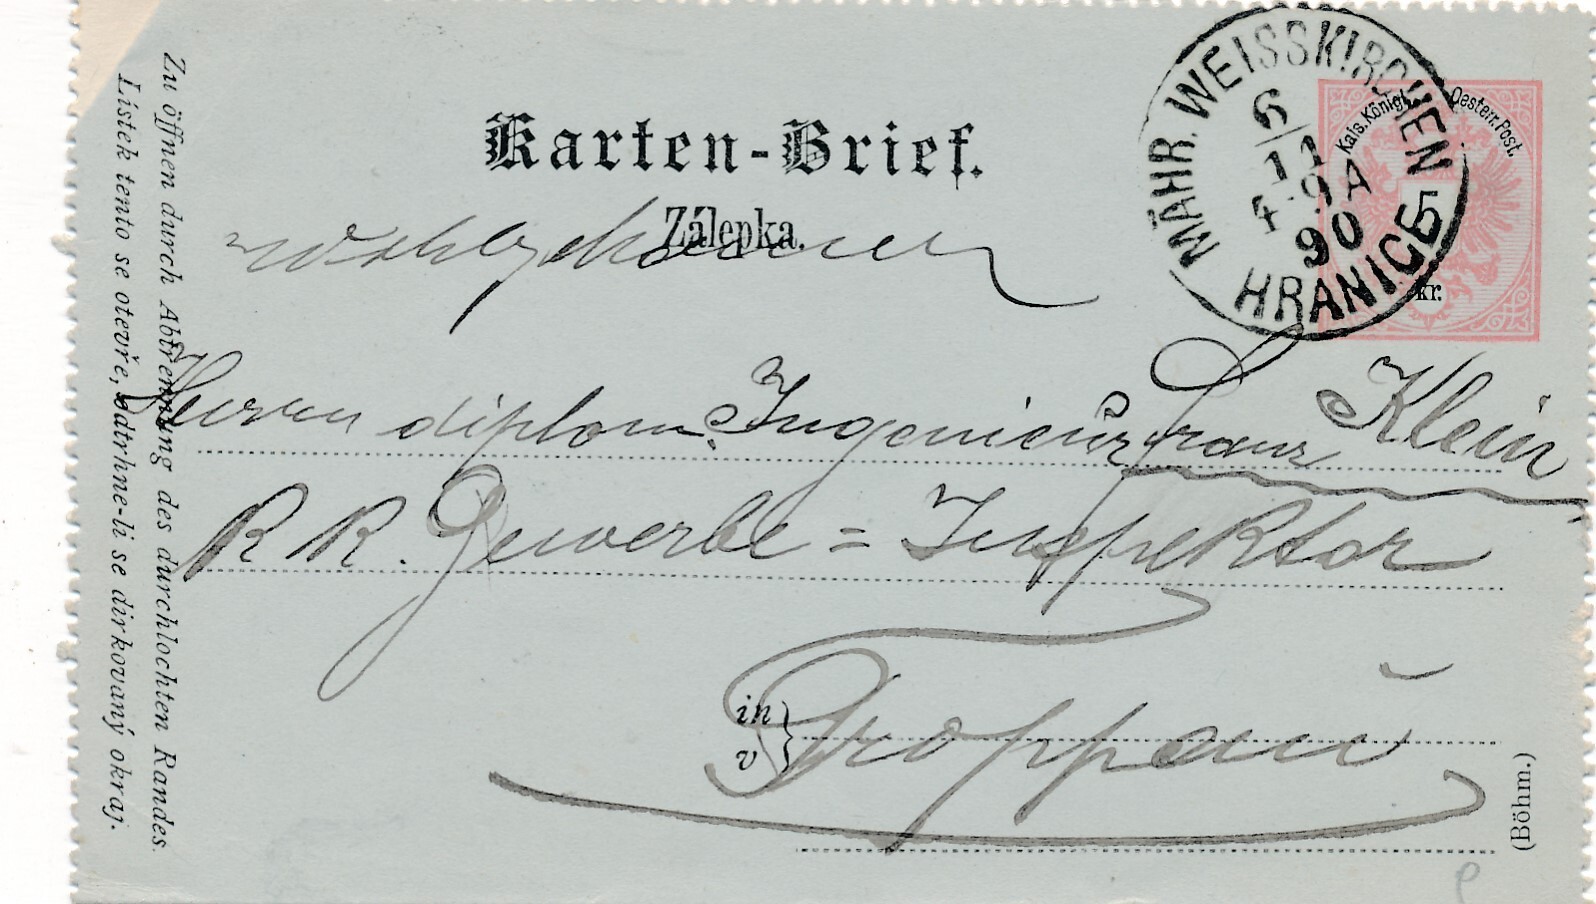 Karten-Brief.
Zálepka.
MÄHR. WEISSKIRCHEN
6/11
4·9A
90
HRANICE
Kais. Königl. Oesterr. Post.
5
kr.
Herrn diplom. Ingenieur Franz Klein
K K. Gewerbe = Inspektor
in
v
Troppau
(Böhm.)
Zu öffnen durch Abtrennung des durchlochten Randes.
Lístek tento se otevře, odtrhne-li se dirkovaný okraj.